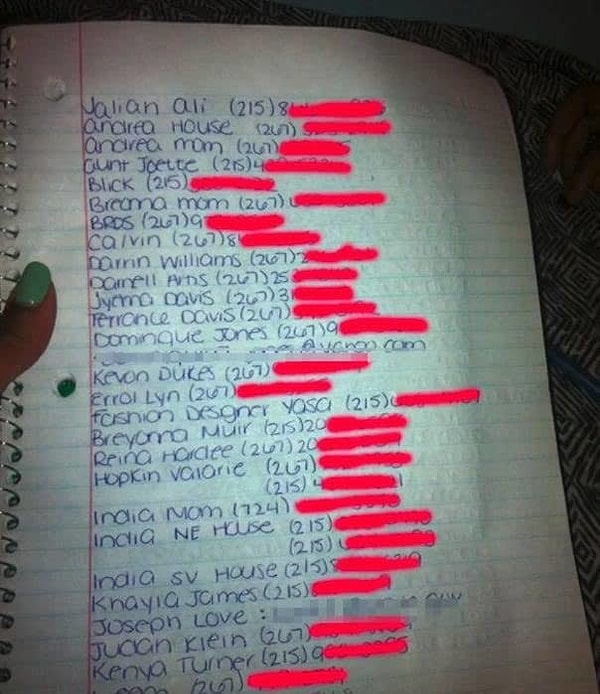 Jalian Ali (215)8
Andrea House (267)
Andrea mom (267)
Aunt Joette (215)4
Blick (215)
Breonna mom (267)
BROS (267)9
Calvin (267)8
Darrin Williams (267)2
Darnell Ams (267)25
Jyenna Davis (267)3
Terrance Davis (267)
Dominique Jones (267)9
@yahoo.com
Kevon Dukes (267)
Errol Lyn (267)
Fashion Designer Yasa (215)
Breyonna Muir (215)20
Reina Hardee (267)20
Hopkin Valorie (267)
(215)4
India Mom (724)
India NE House (215)
(215)
India SV House (215)
Khayla James (215)
Joseph Love :
Judah Klein (267)
Kenya Turner (215)9
(267)